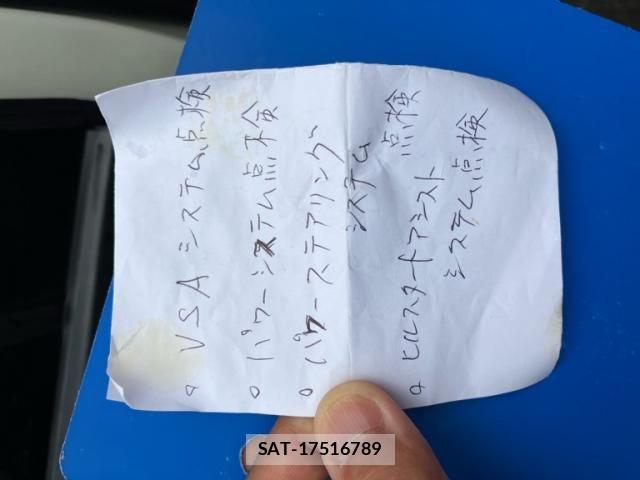 ○ VSA システム点検
○ パワーシステム点検
○ パワーステアリング
システム 点検
○ ヒルスタートアシスト
システム点検
SAT-17516789